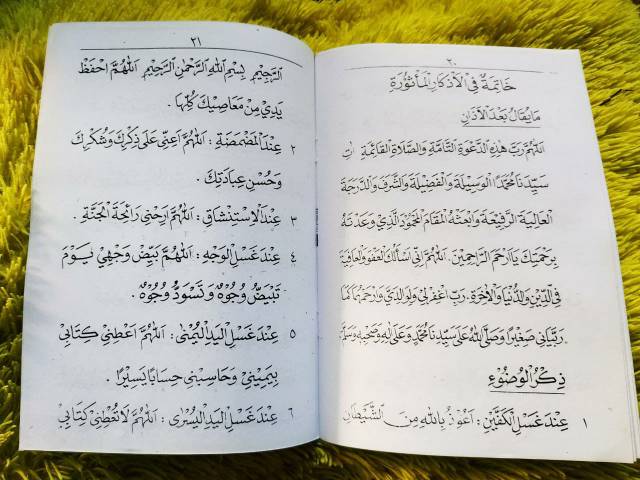 ٢٠
خَاتِمَةٌ فِي الْأَذْكَارِ الْمَأْثُورَةِ
مَايُقَالُ بَعْدَ الْأَذَانِ
اَللّٰهُمَّ رَبَّ هٰذِهِ الدَّعْوَةِ التَّامَّةِ وَالصَّلَاةِ الْقَائِمَةِ اٰتِ
سَيِّدَنَا مُحَمَّدًا الْوَسِيلَةَ وَالْفَضِيلَةَ وَالشَّرَفَ وَالدَّرَجَةَ
الْعَالِيَةَ الرَّفِيعَةَ وَابْعَثْهُ الْمَقَامَ الْمَحْمُودَ الَّذِي وَعَدْتَهُ
بِرَحْمَتِكَ يَاأَرْحَمَ الرَّاحِمِينَ. اَللّٰهُمَّ اِنِّي اَسْأَلُكَ الْعَفْوَ وَالْعَافِيَةَ
فِي الدِّينِ وَالدُّنْيَا وَالْاٰخِرَةِ. رَبِّ اغْفِرْلِي وَلِوَالِدَيَّ وَارْحَمْهُمَا كَمَا
رَبَّيَانِي صَغِيرًا وَصَلَّى اللهُ عَلَى سَيِّدِنَا مُحَمَّدٍ وَعَلَى اٰلِهِ وَصَحْبِهِ وَسَلَّمَ
ذِكْرُ الْوُضُوْءِ
١ عِنْدَ غَسْلِ الْكَفَّيْنِ : اَعُوْذُ بِاللهِ مِنَ الشَّيْطَانِ
٢١
الرَّجِيْمِ بِسْمِ اللهِ الرَّحْمٰنِ الرَّحِيْمِ اَللّٰهُمَّ احْفَظْ
يَدِيْ مِنْ مَعَاصِيْكَ كُلِّهَا .
٢ عِنْدَ الْمَضْمَضَةِ : اَللّٰهُمَّ اَعِنِّيْ عَلَى ذِكْرِكَ وَشُكْرِكَ
وَحُسْنِ عِبَادَتِكَ
٣ عِنْدَ الْاِسْتِنْشَاقِ : اَللّٰهُمَّ اَرِحْنِيْ رَائِحَةَ الْجَنَّةِ .
٤ عِنْدَ غَسْلِ الْوَجْهِ : اَللّٰهُمَّ بَيِّضْ وَجْهِيْ يَوْمَ
تَبْيَضُّ وُجُوْهٌ وَتَسْوَدُّ وُجُوْهٌ.
٥ عِنْدَ غَسْلِ الْيَدِ الْيُمْنٰى : اَللّٰهُمَّ اَعْطِنِيْ كِتَابِيْ
بِيَمِيْنِيْ وَحَاسِبْنِيْ حِسَابًا يَسِيْرًا .
٦ عِنْدَ غَسْلِ الْيَدِ الْيُسْرٰى : اَللّٰهُمَّ لَا تُعْطِنِيْ كِتَابِيْ